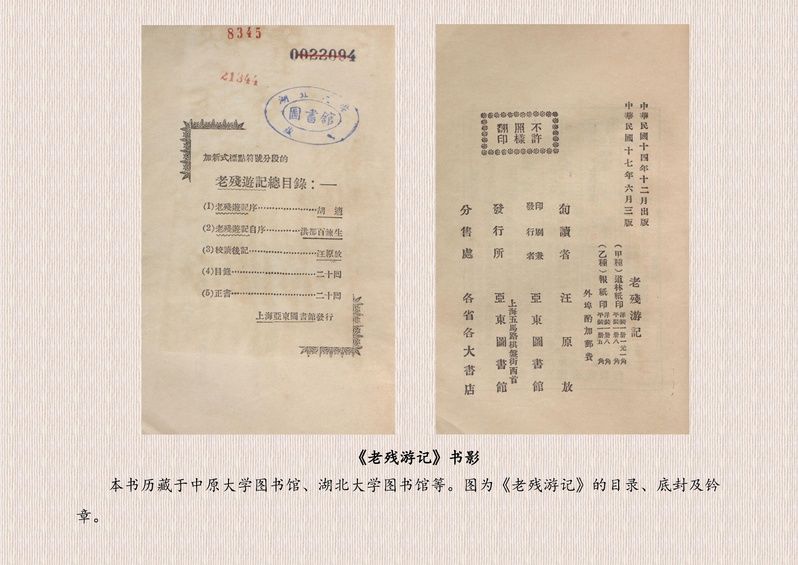 8345
0022094
21344
湖北大學
圖書館
加新式標點符號分段的
老殘遊記總目錄：—
(1)老殘遊記序…………………胡適
(2)老殘遊記自序…………洪都百鍊生
(3)校讀後記…………………汪原放
(4)目錄…………………二十回
(5)正書…………………二十回
上海亞東圖書館發行
中華民國十四年十二月出版
中華民國十七年六月三版
老殘游記
(甲種)道林紙印
洋裝一册一元一角
平裝一册八角
(乙種)報紙印
洋裝一册八角
平裝一册五角
外埠酌加郵費
不許
照樣
翻印
句讀者 汪原放
印刷兼
發行者 亞東圖書館
發行所 上海五馬路棋盤街西首
亞東圖書館
分售處 各省各大書店
《老残游记》书影
本书历藏于中原大学图书馆、湖北大学图书馆等。图为《老残游记》的目录、底封及钤
章。